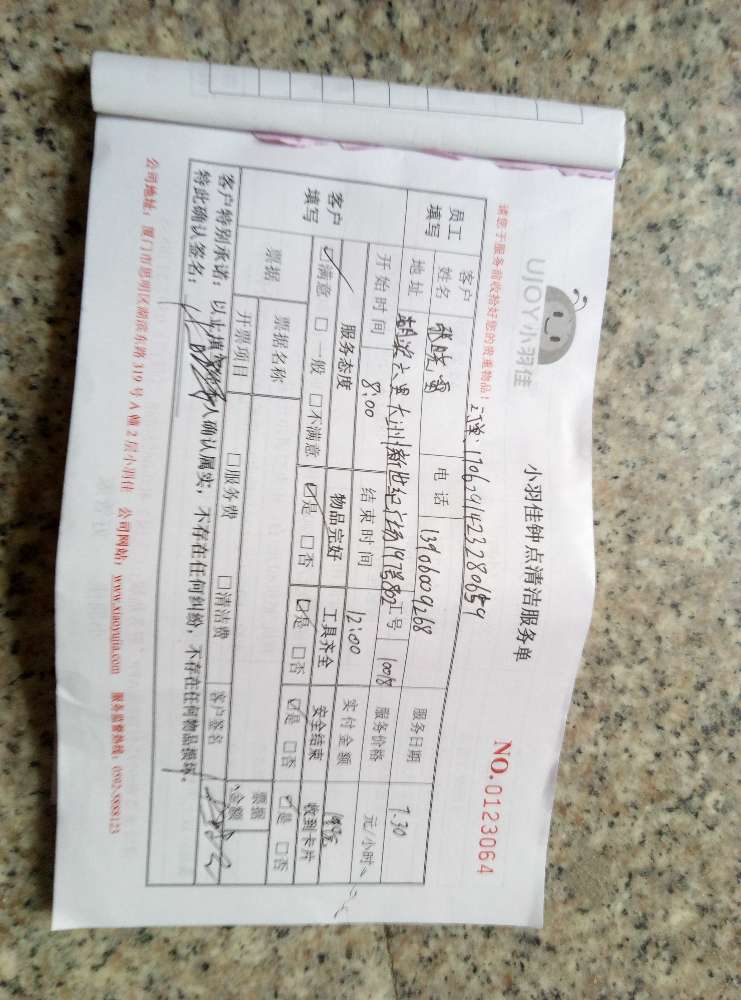 UJOY小羽佳
小羽佳钟点清洁服务单
NO.0123064
请您于服务前收拾好您的贵重物品!
1706291423280659
员工填写 客户姓名 张晓雷 电话 13906009268 服务日期 7.30
地址 大洲新世纪广场 802 工号 10018 服务价格 元/小时
开始时间 8:00 结束时间 12:00 实付金额
客户填写 服务态度 物品完好 工具齐全 安全结束 收到卡片
☑满意 □一般 □不满意 ☑是 □否 ☑是 □否 ☑是 □否 ☑是 □否
票据 票据名称 票据金额
开票项目 □服务费 □清洁费 客户签名
客户特别承诺:以上填写 人确认属实,不存在任何纠纷,不存在任何物品损坏,
特此确认签名:
公司地址:厦门市思明区湖滨东路319号A幢2层小羽佳 公司网站:www.xiaoyujia.com 服务监督热线:0592-5888123